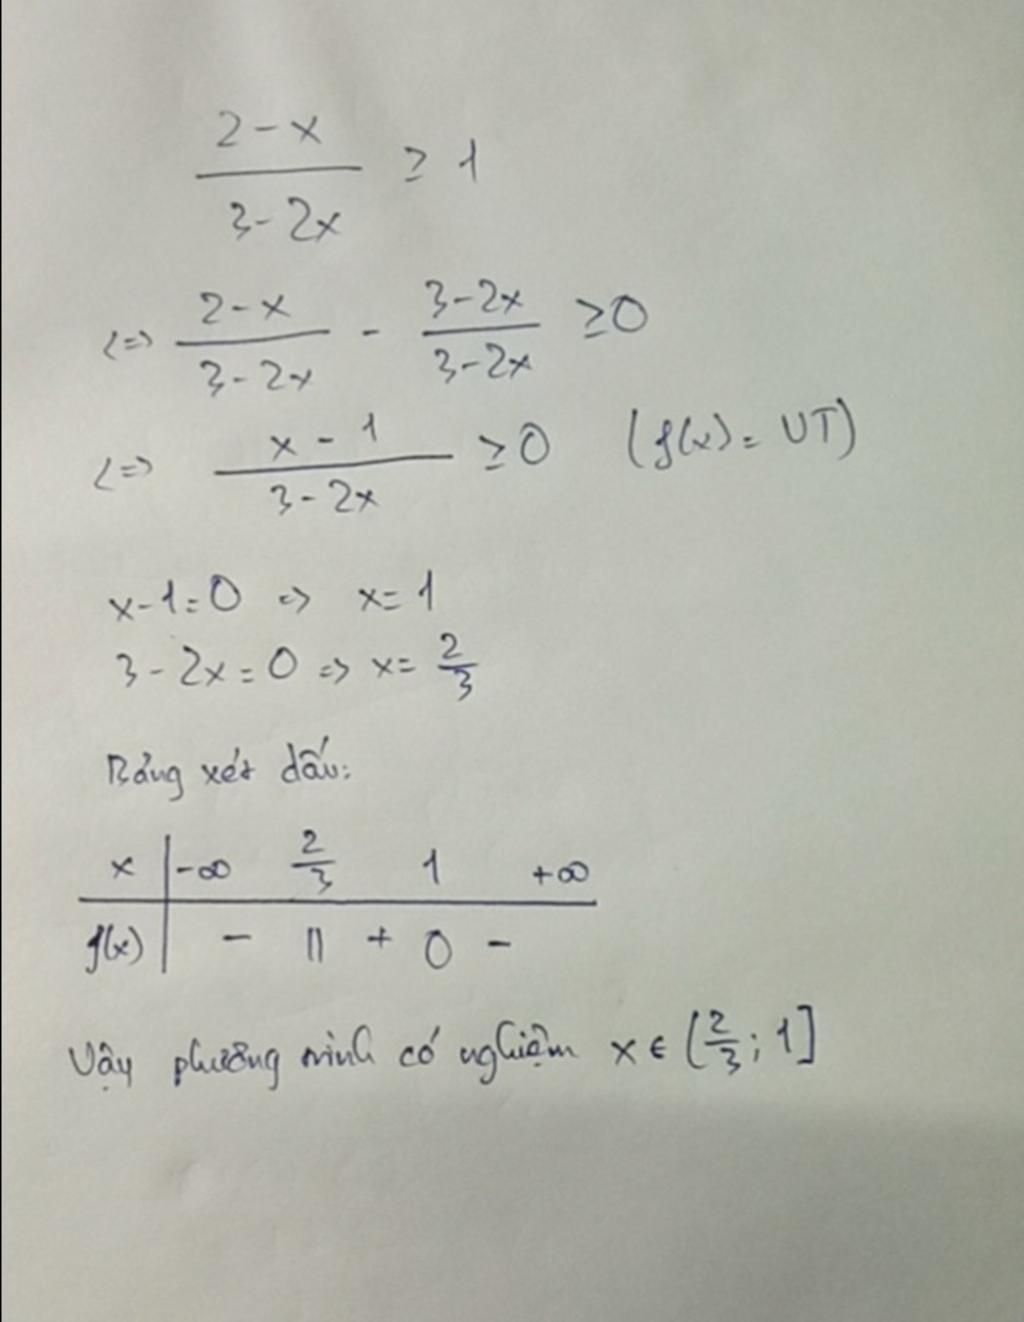 (2-x)/(3-2x) ≥ 1
<=> (2-x)/(3-2x) - (3-2x)/(3-2x) ≥ 0
<=> (x-1)/(3-2x) ≥ 0 (f(x) = VT)
x-1=0 => x=1
3-2x=0 => x=2/3
Bảng xét dấu:
x | -∞ 2/3 1 +∞
f(x) | - || + 0 -
Vậy phương trình có nghiệm x ∈ (2/3; 1]